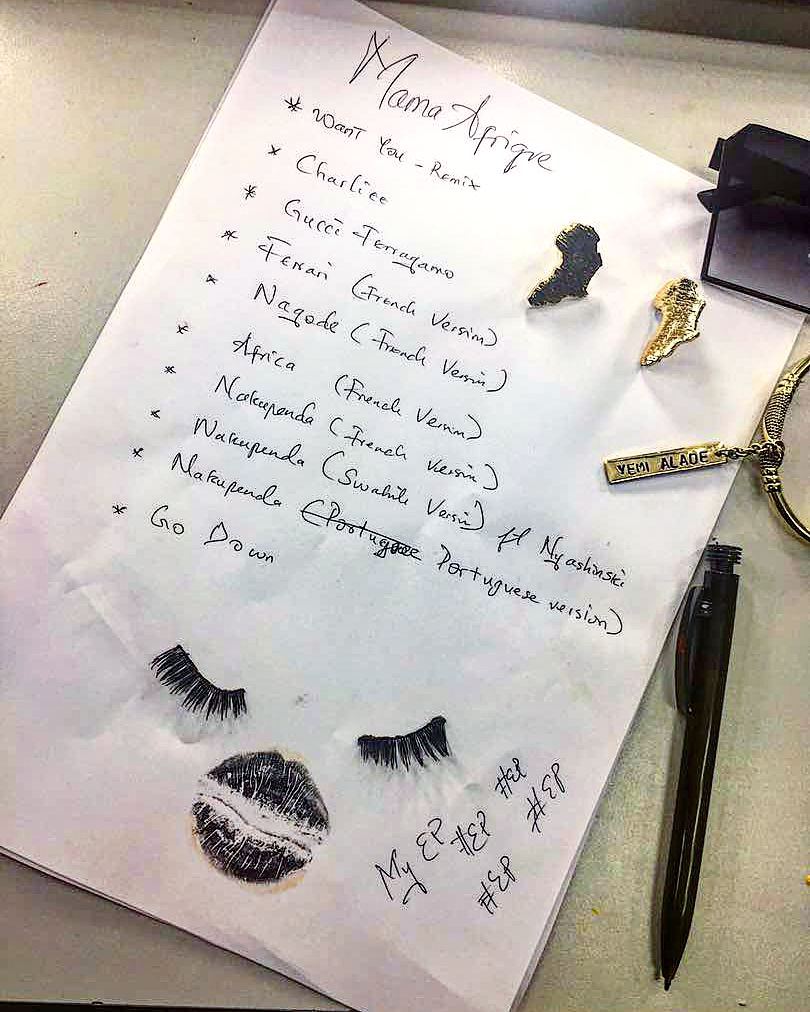 Mama Afrique
* Want You - Remix
* Charliee
* Gucci Ferragamo
* Ferrari (French Version)
* Nagode (French Version)
* Africa (French Version)
* Nakupenda (French Version)
* Nakupenda (Swahili Version) ft Nyashinski
* Nakupenda (Portuguese Portuguese version)
* Go Down
YEMI ALADE
My EP #EP #EP
#EP #EP